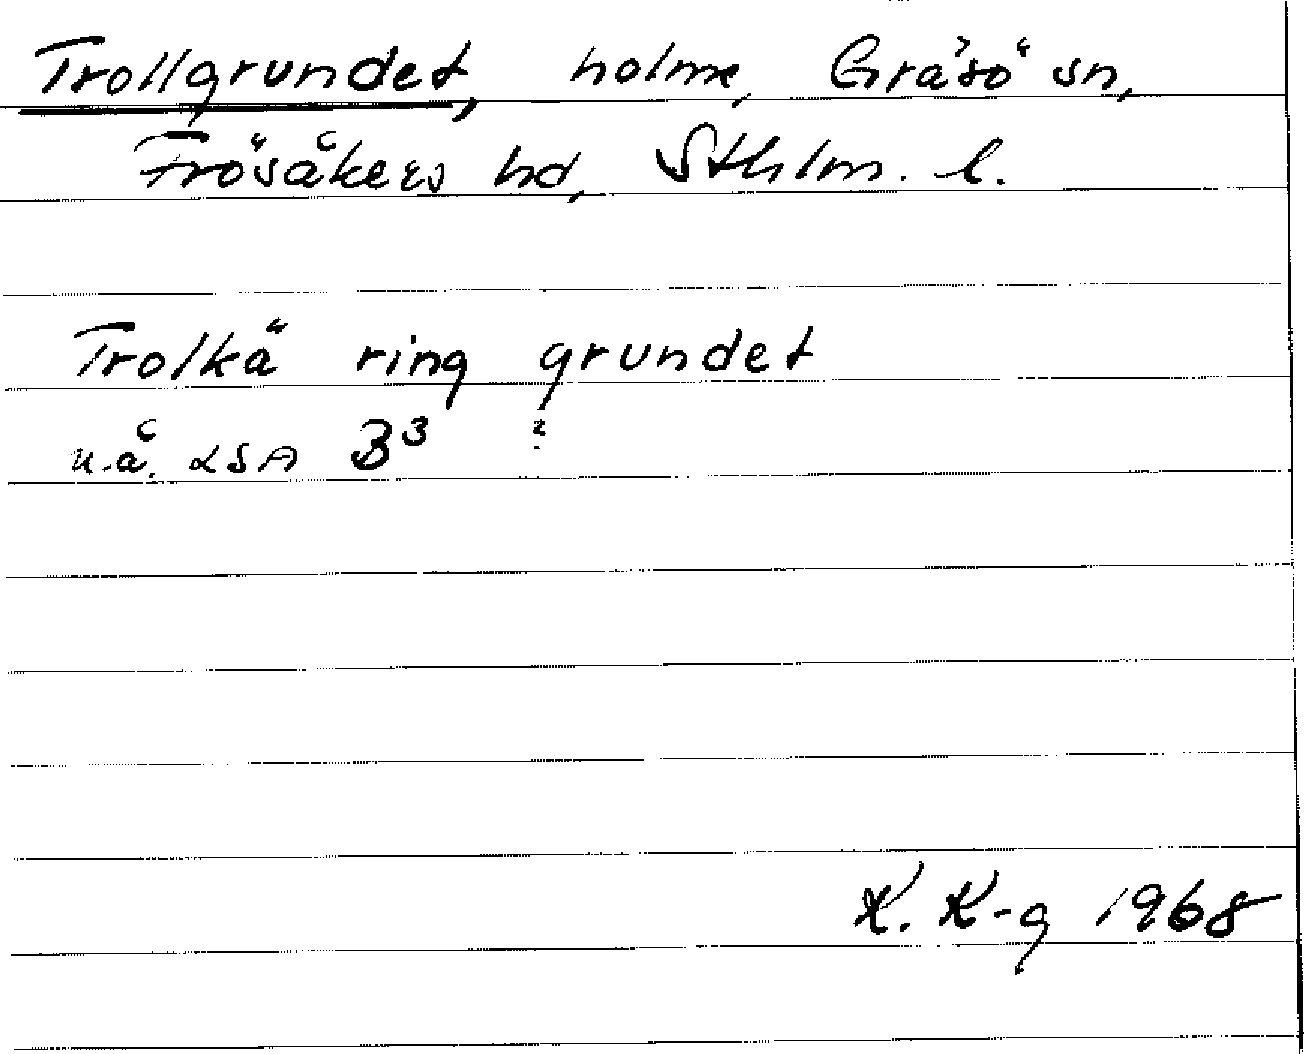 Trollgrundet, holme, Gräsö sn,
Frösåkers hd, Sthlm. l.
Trolkä ring grundet
u.å. LSA B³ ?
K. K-g 1968